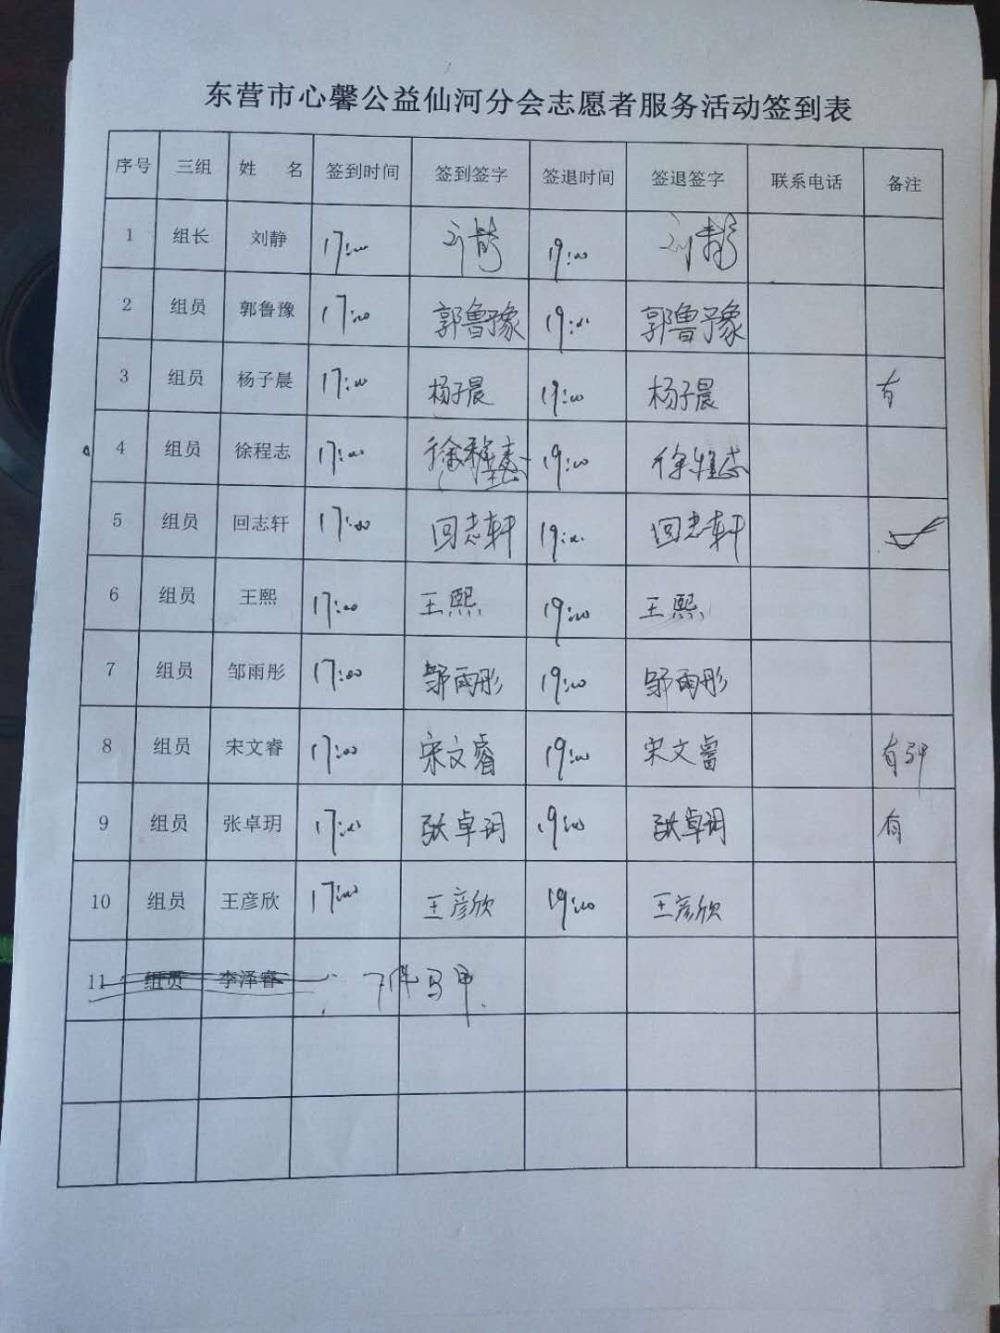 东营市心馨公益仙河分会志愿者服务活动签到表
序号 三组 姓 名 签到时间 签到签字 签退时间 签退签字 联系电话 备注
1 组长 刘静 17:00 刘静 19:00 刘静
2 组员 郭鲁豫 17:00 郭鲁豫 19:00 郭鲁豫
3 组员 杨子晨 17:00 杨子晨 19:00 杨子晨 有
4 组员 徐程志 17:00 徐程志 19:00 徐程志
5 组员 回志轩 17:00 回志轩 19:00 回志轩
6 组员 王熙 17:00 王熙 19:00 王熙
7 组员 邹雨彤 17:00 邹雨彤 19:00 邹雨彤
8 组员 宋文睿 17:00 宋文睿 19:00 宋文睿 有
9 组员 张卓玥 17:00 张卓玥 19:00 张卓玥 有
10 组员 王彦欣 17:00 王彦欣 19:00 王彦欣
11 组员 李泽睿 7件马甲